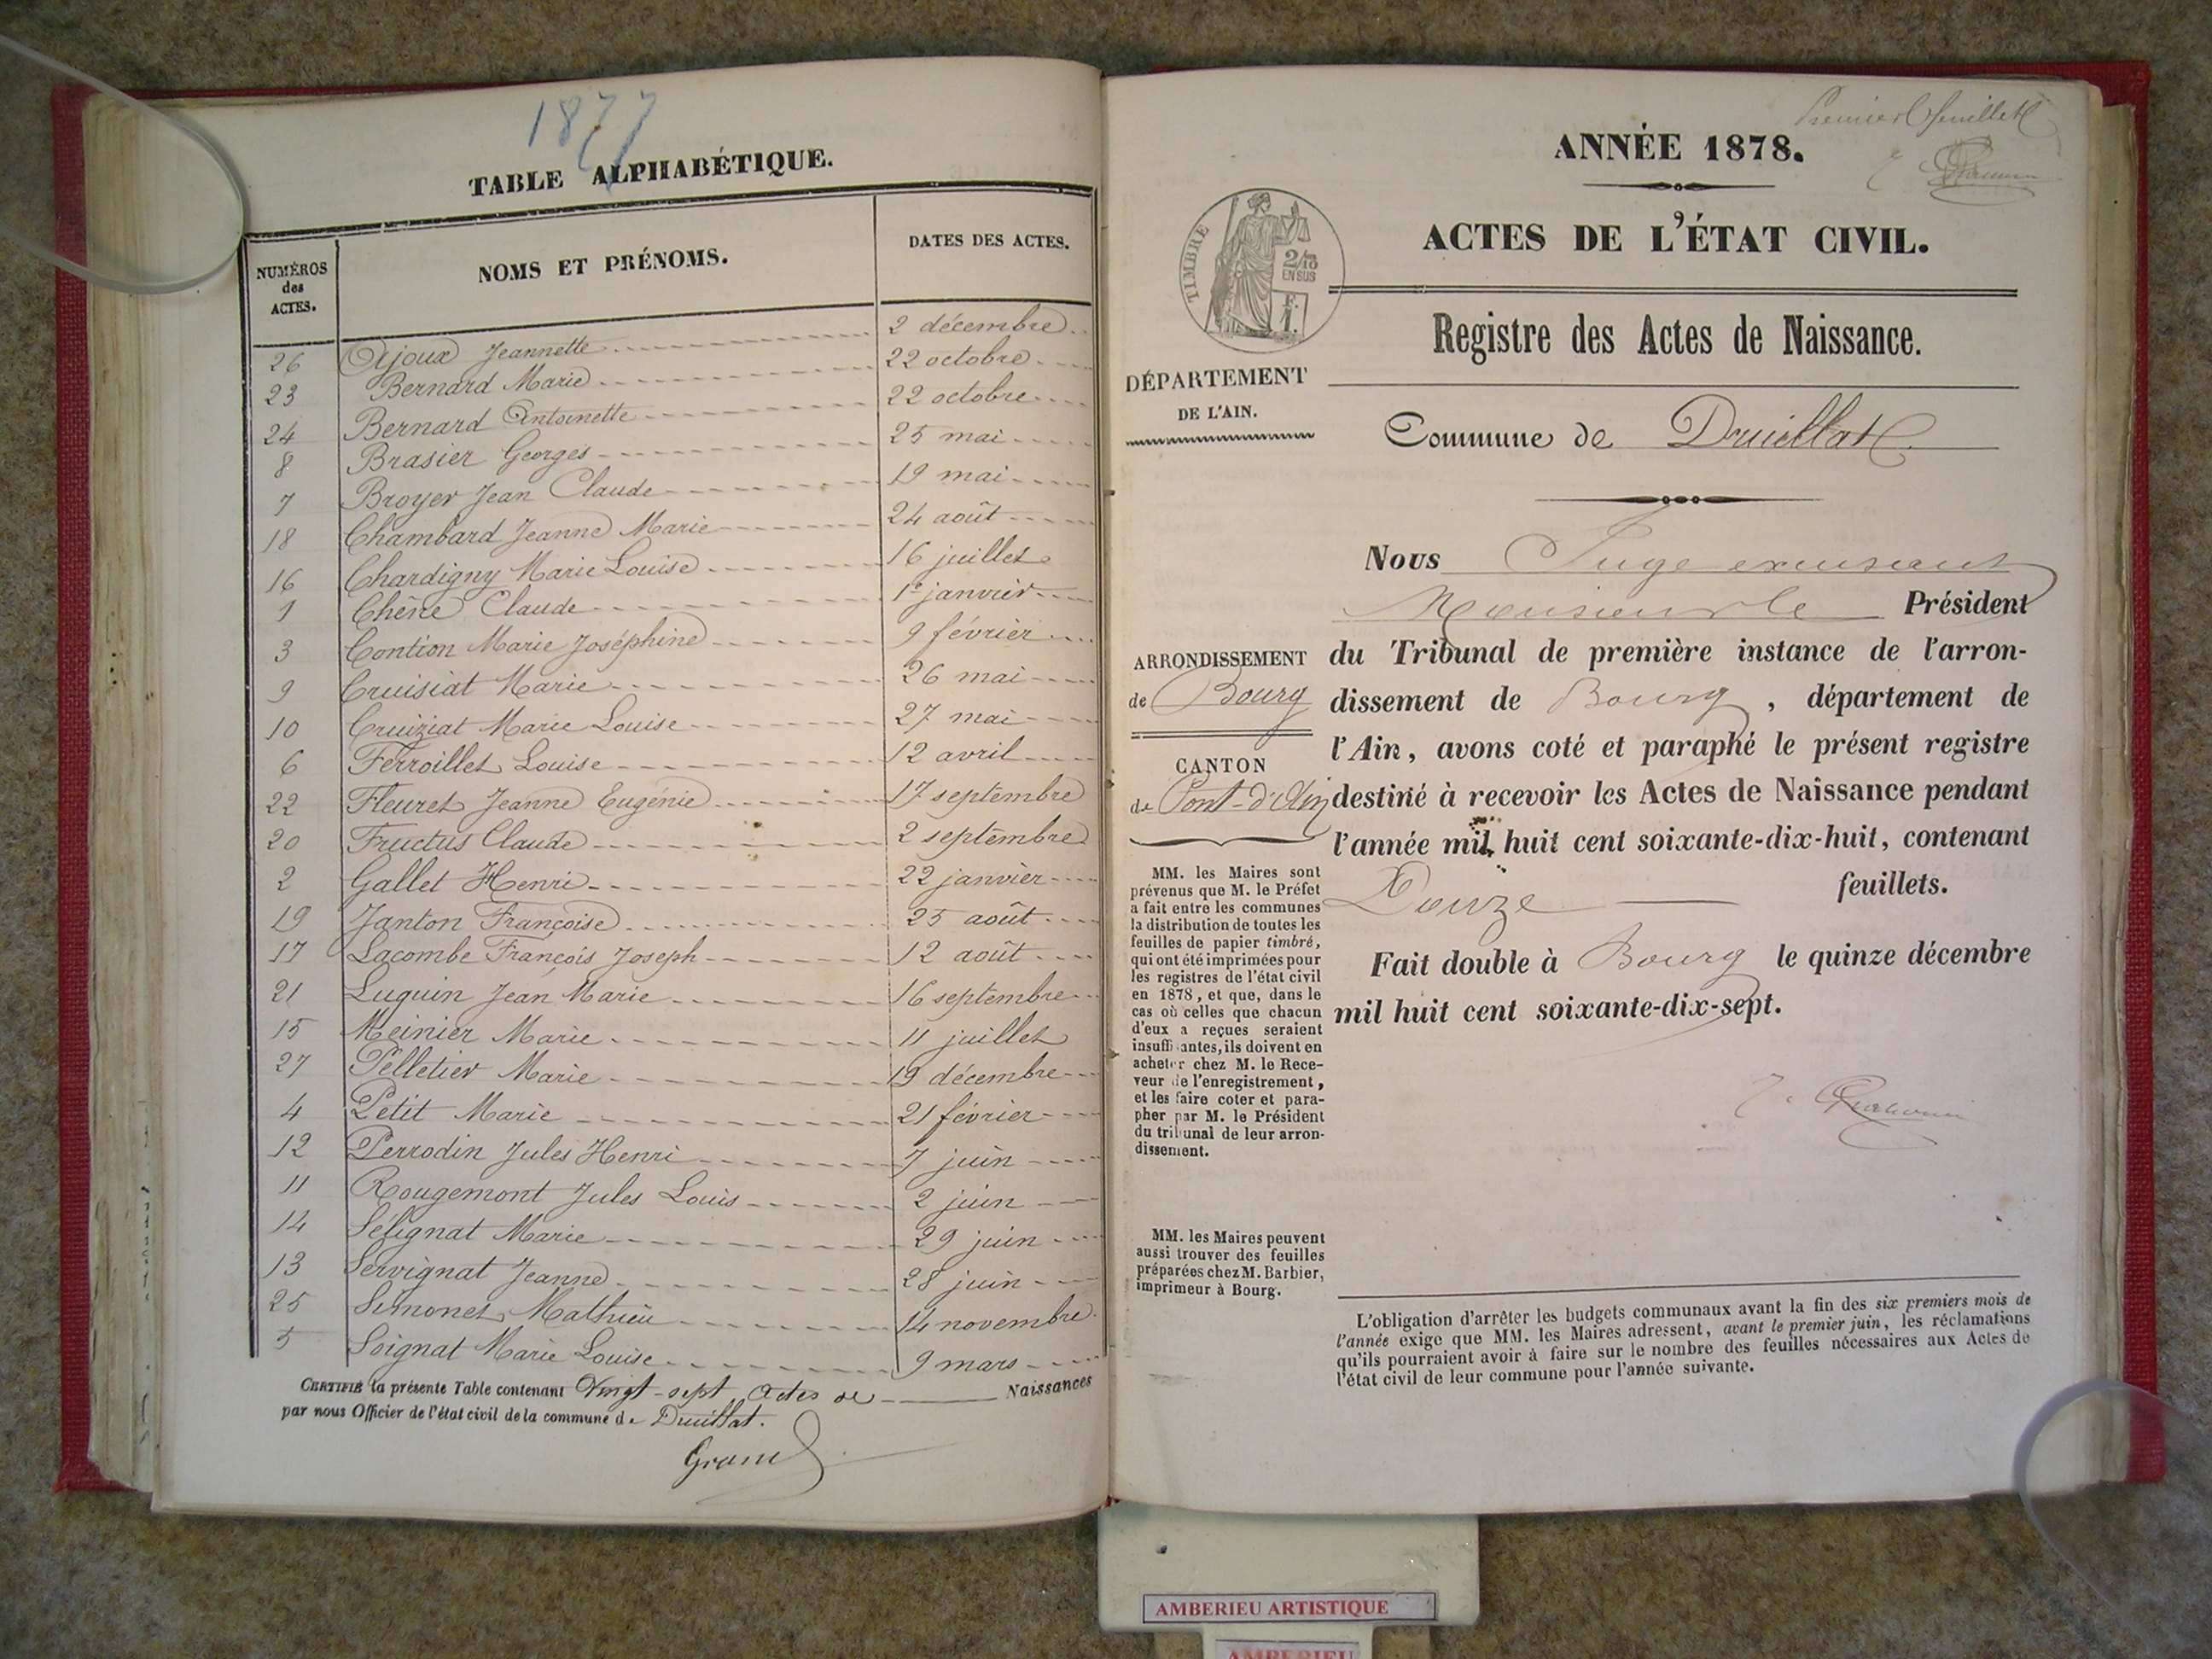 1877
TABLE ALPHABÉTIQUE.
NUMÉROS des ACTES. NOMS ET PRÉNOMS. DATES DES ACTES.
26 Ajoux Jeannette 2 décembre
23 Bernard Marie 22 octobre
24 Bernard Antoinette 22 octobre
8 Brasier Georges 25 mai
7 Broyer Jean Claude 19 mai
18 Chambard Jeanne Marie 24 août
16 Chardigny Marie Louise 16 juillet
1 Chêne Claude 1er janvier
3 Contion Marie Joséphine 9 février
9 Cruisiat Marie 26 mai
10 Cruiziat Marie Louise 27 mai
6 Ferroillet Louise 12 avril
22 Fleuret Jeanne Eugénie 17 septembre
20 Fructus Claude 2 septembre
2 Gallet Henri 22 janvier
19 Janton Françoise 25 août
17 Lacombe François Joseph 12 août
21 Luquin Jean Marie 16 septembre
15 Meinier Marie 11 juillet
27 Pelletier Marie 19 décembre
4 Petit Marie 21 février
12 Perrodin Jules Henri 7 juin
11 Rougemont Jules Louis 2 juin
14 Sélignat Marie 29 juin
13 Servignat Jeanne 28 juin
25 Simonet Mathieu 14 novembre
5 Soignat Marie Louise 9 mars
CERTIFIÉ la présente Table contenant Vingt-sept Actes de Naissances
par nous Officier de l'état civil de la commune de Druillat.
Grand
Premier feuillet
ANNÉE 1878.
ACTES DE L'ÉTAT CIVIL.
Registre des Actes de Naissance.
TIMBRE
2/10
EN SUS
F.
1.
DÉPARTEMENT
DE L'AIN.
Commune de Druillat
Nous Juge
Monsieur le Président
du Tribunal de première instance de l'arron-
dissement de Bourg, département de
l'Ain, avons coté et paraphé le présent registre
destiné à recevoir les Actes de Naissance pendant
l'année mil huit cent soixante-dix-huit, contenant
Douze feuillets.
Fait double à Bourg le quinze décembre
mil huit cent soixante-dix-sept.
ARRONDISSEMENT
de Bourg
CANTON
de Pont-d'Ain
MM. les Maires sont
prévenus que M. le Préfet
a fait entre les communes
la distribution de toutes les
feuilles de papier timbré,
qui ont été imprimées pour
les registres de l'état civil
en 1878, et que, dans le
cas où celles que chacun
d'eux a reçues seraient
insuffisantes, ils doivent en
acheter chez M. le Rece-
veur de l'enregistrement,
et les faire coter et para-
pher par M. le Président
du tribunal de leur arron-
dissement.
MM. les Maires peuvent
aussi trouver des feuilles
préparées chez M. Barbier,
imprimeur à Bourg.
L'obligation d'arrêter les budgets communaux avant la fin des six premiers mois de
l'année exige que MM. les Maires adressent, avant le premier juin, les réclamations
qu'ils pourraient avoir à faire sur le nombre des feuilles nécessaires aux Actes de
l'état civil de leur commune pour l'année suivante.
AMBERIEU ARTISTIQUE
AMBERIEU